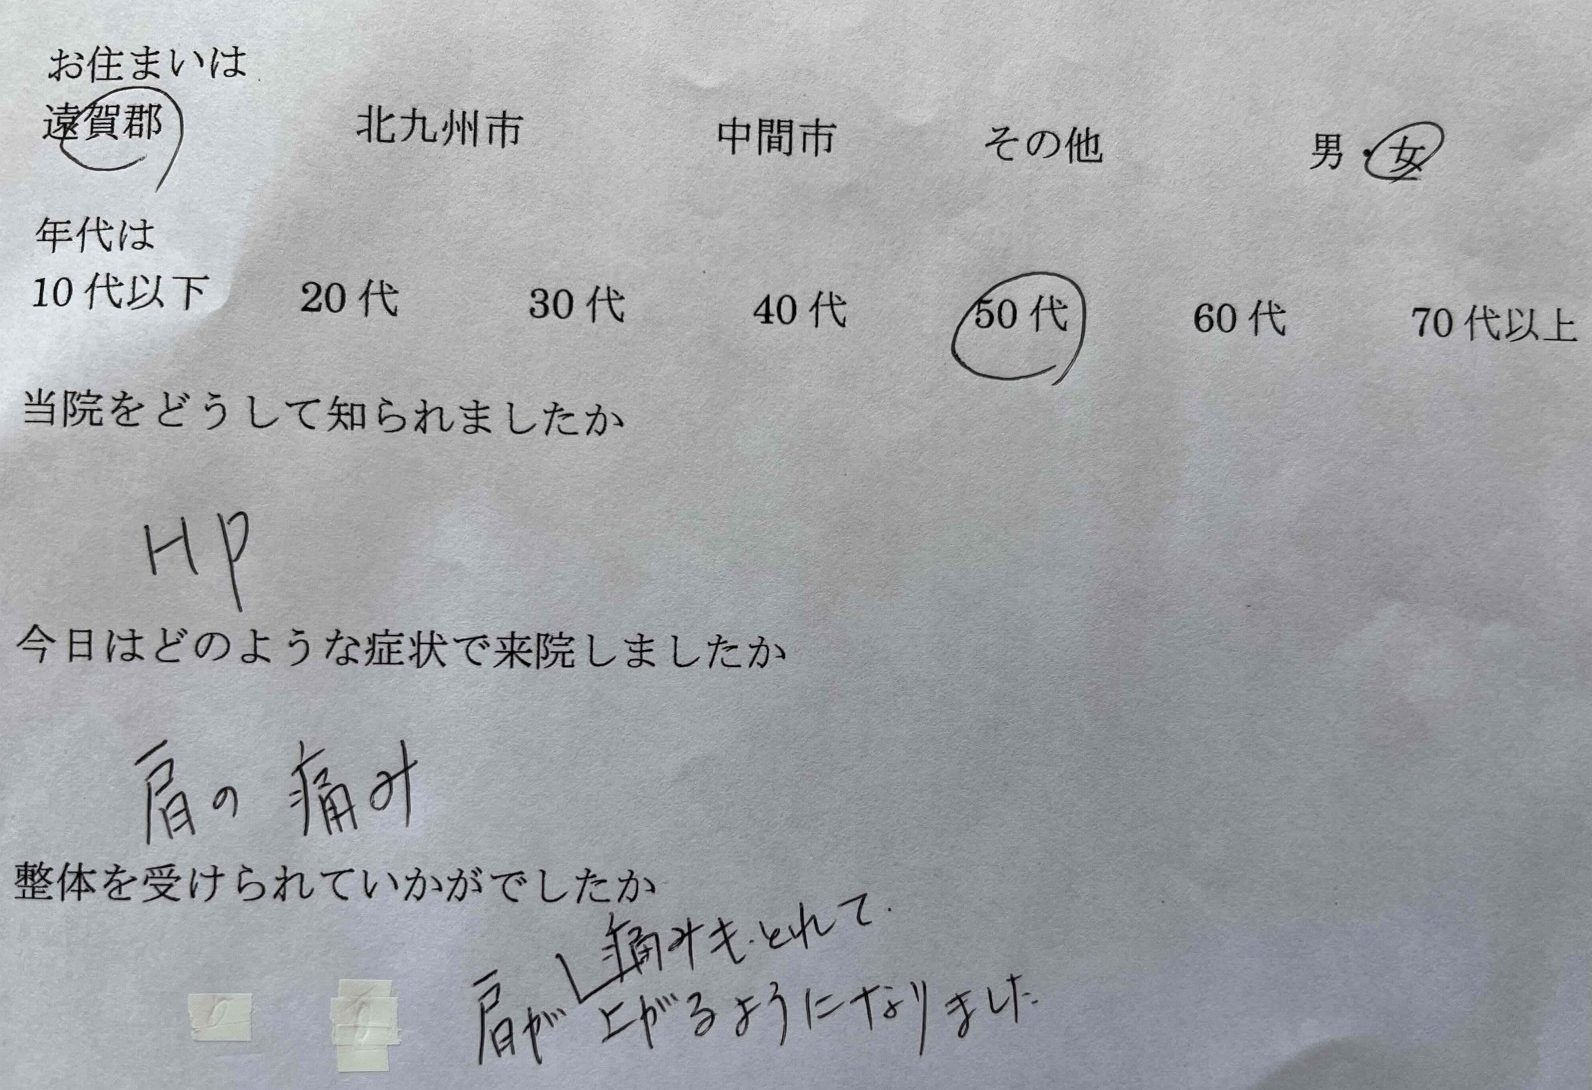 お住まいは
遠賀郡 北九州市 中間市 その他 男・女
年代は
10代以下 20代 30代 40代 50代 60代 70代以上
当院をどうして知られましたか
HP
今日はどのような症状で来院しましたか
肩の痛み
整体を受けられていかがでしたか
痛みも、とれて、
肩が上がるようになりました